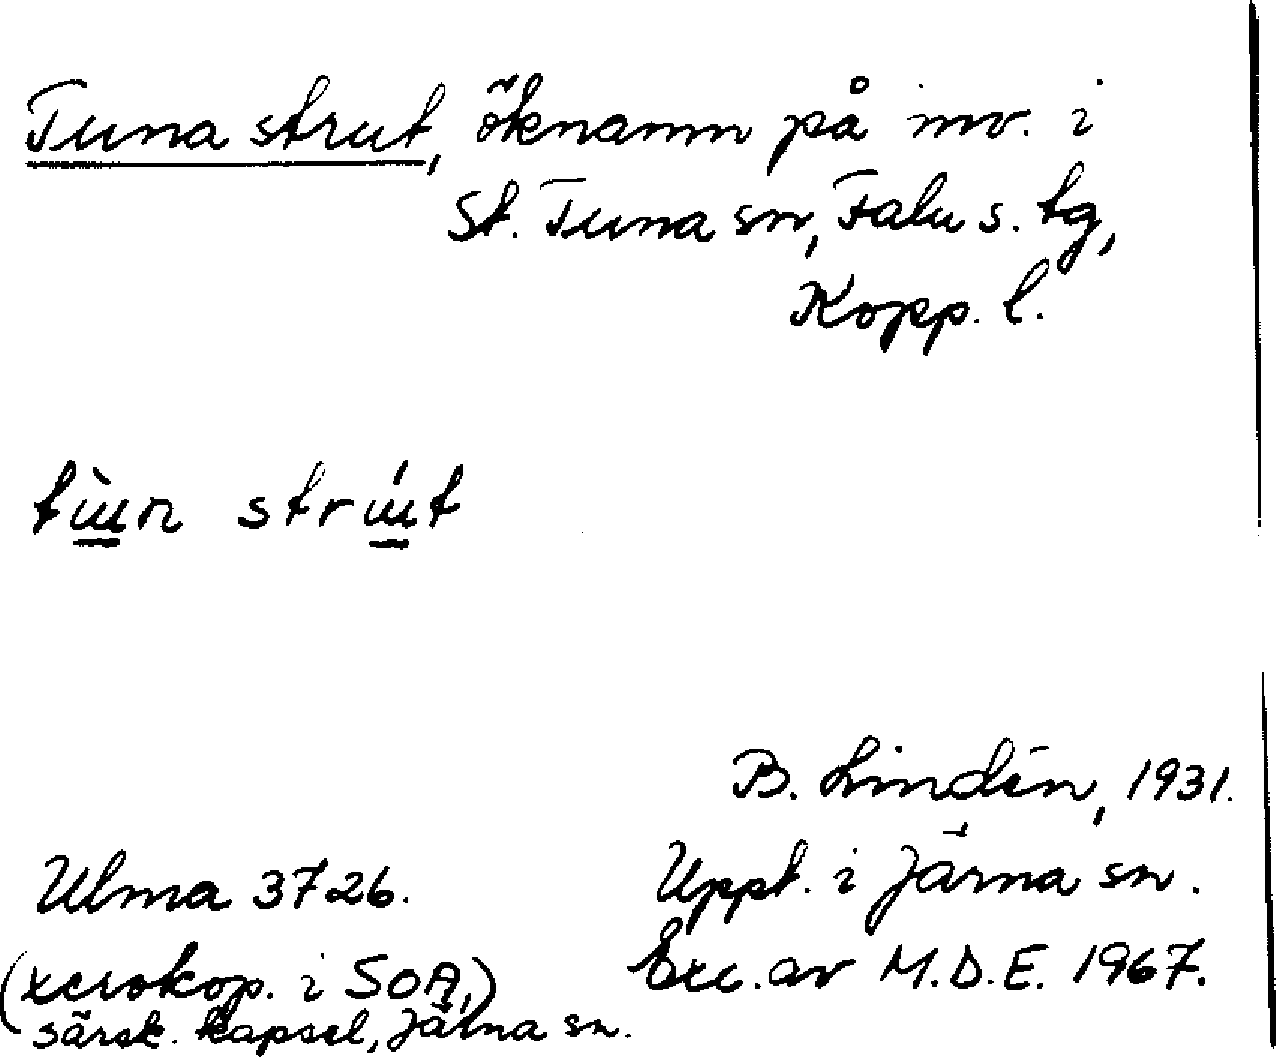 Tuna strut, öknamn på inv. i
St. Tuna sn, Falu s. tg,
Kopp. l.
tɯ̀n strɯ́t
B. Lindén, 1931.
Ulma 3726.
Uppt. i Järna sn.
(xerokop. i SOA,)
Exc. av M.D.E. 1967.
särsk. kapsel, Järna sn.